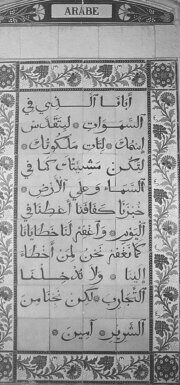 ARABE
أبانا الذي في
السموات ۞ ليتقدس
اسمك ۞ لتات ملكوتك ۞
لتكن مشيئتك كما في
السماء وعلي الأرض ۞
خبزنا كفافنا أعطنا في
اليوم ۞ واغفر لنا خطايانا
كما نغفر نحن لمن أخطاء
إلينا ۞ ولا تدخلنا
التجارب ۞ لكن نجنا من
الشرير ۞ أمين ۞